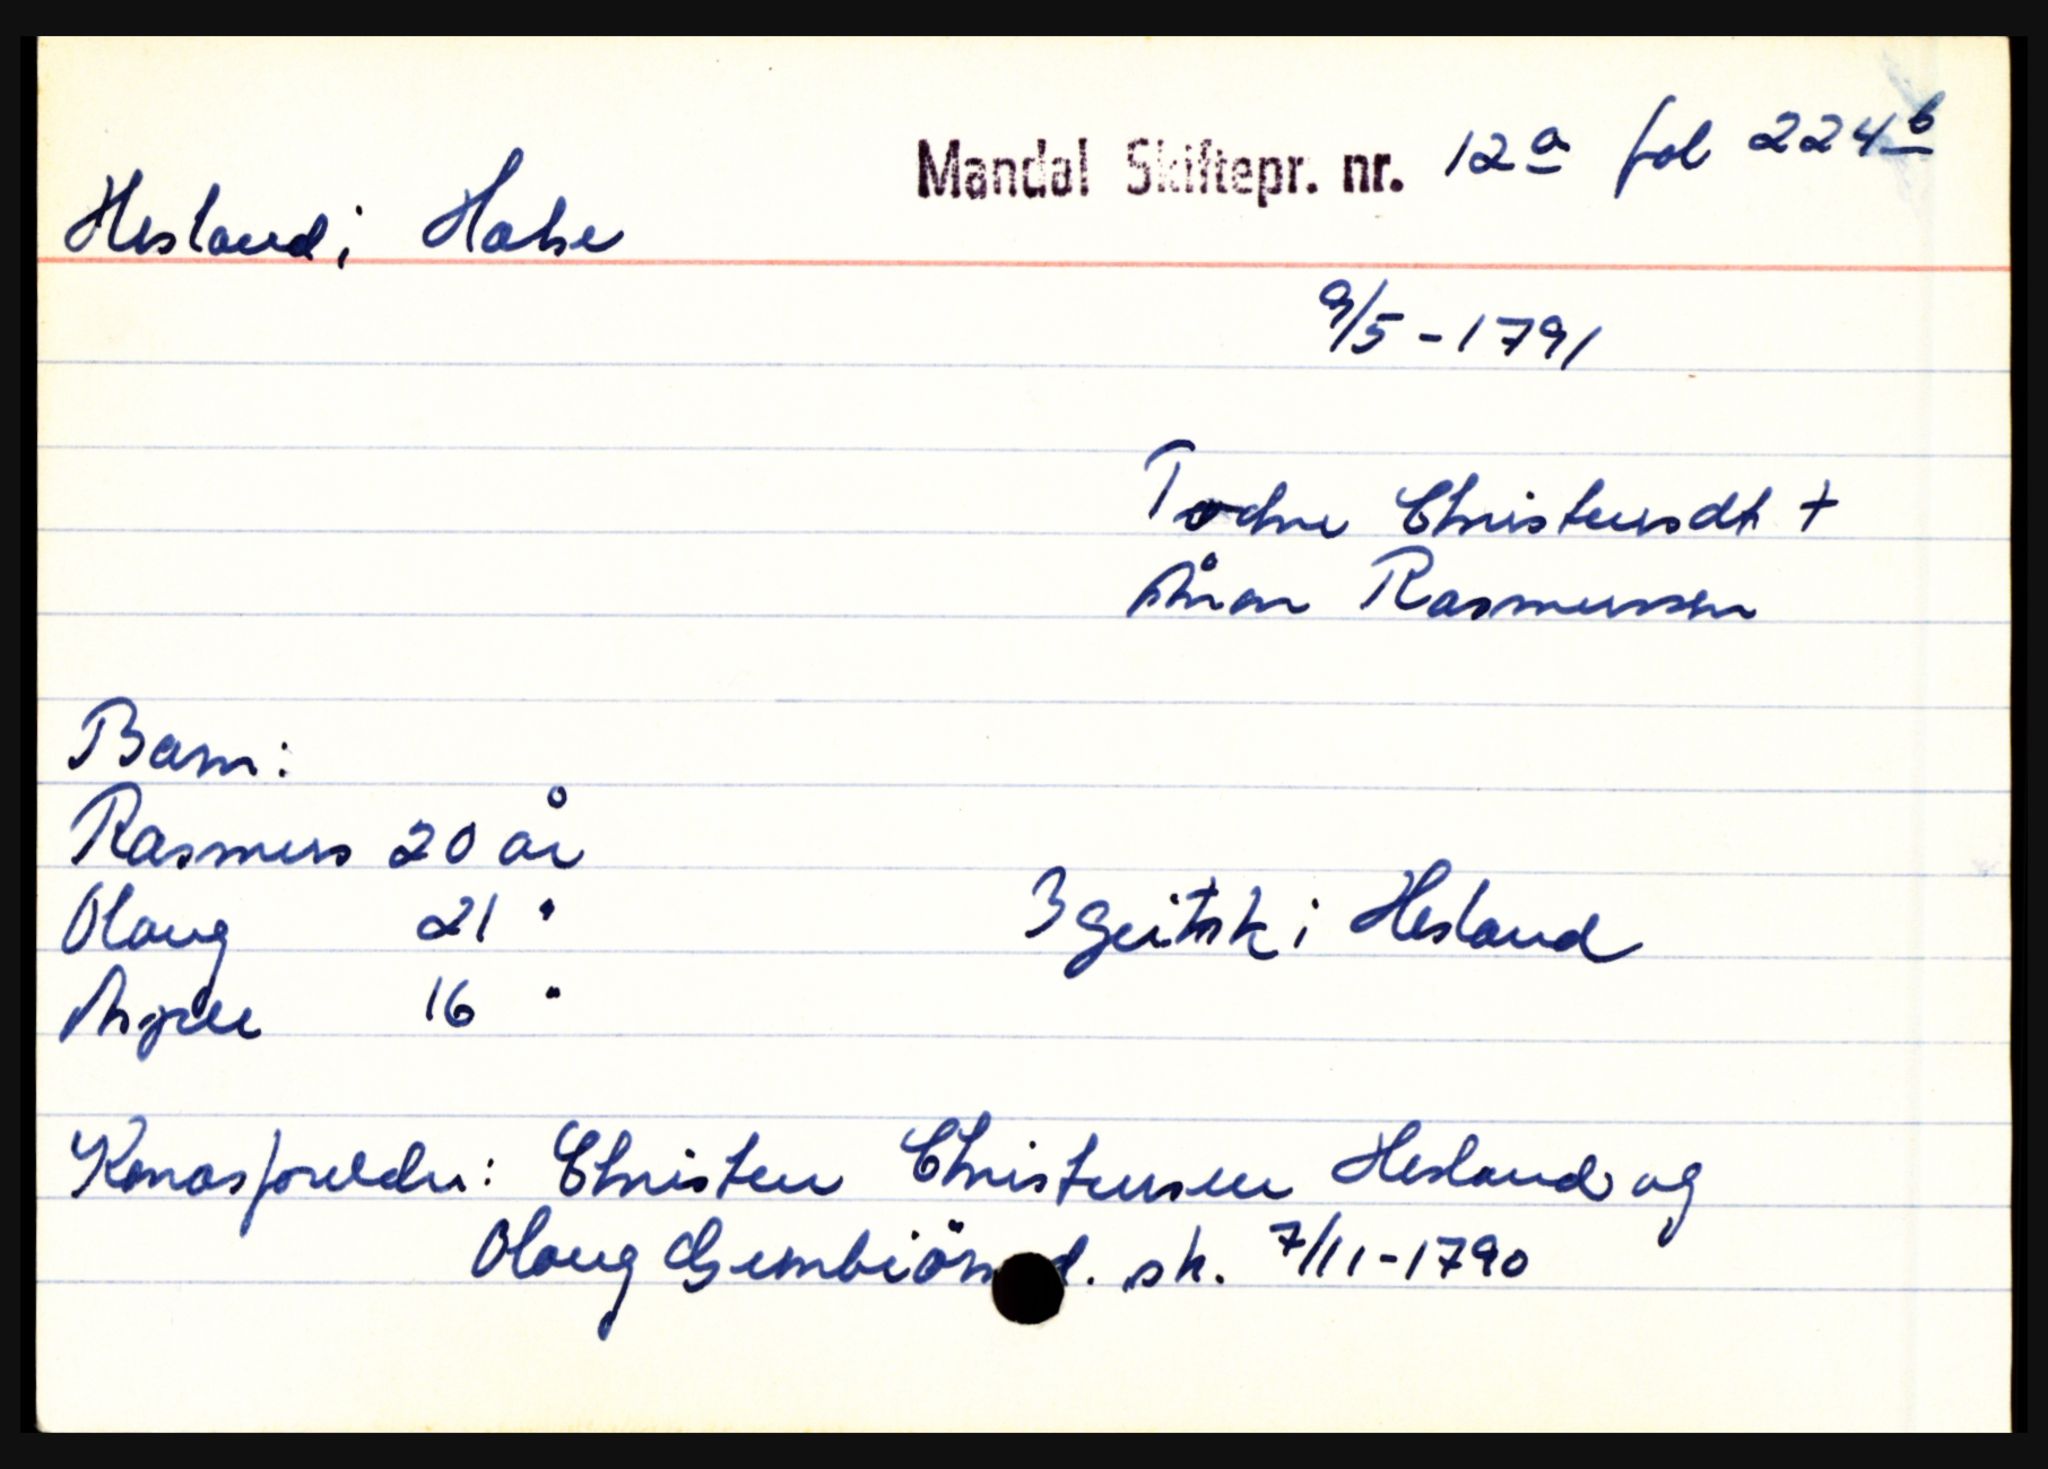 Mandal Skiftepr. nr. 12a fol 224b
Hesland i Halse
9/5 - 1791
Todne Christensdt +
Ånon Rasmussen
Barn:
Rasmus 20 år
Olaug 21 "
Asgier 16 "
3 geitsk i Hesland
Konasforeldre: Christen Christensen Hesland og
Olaug Gumbiörnsd. sk. 7/11-1790